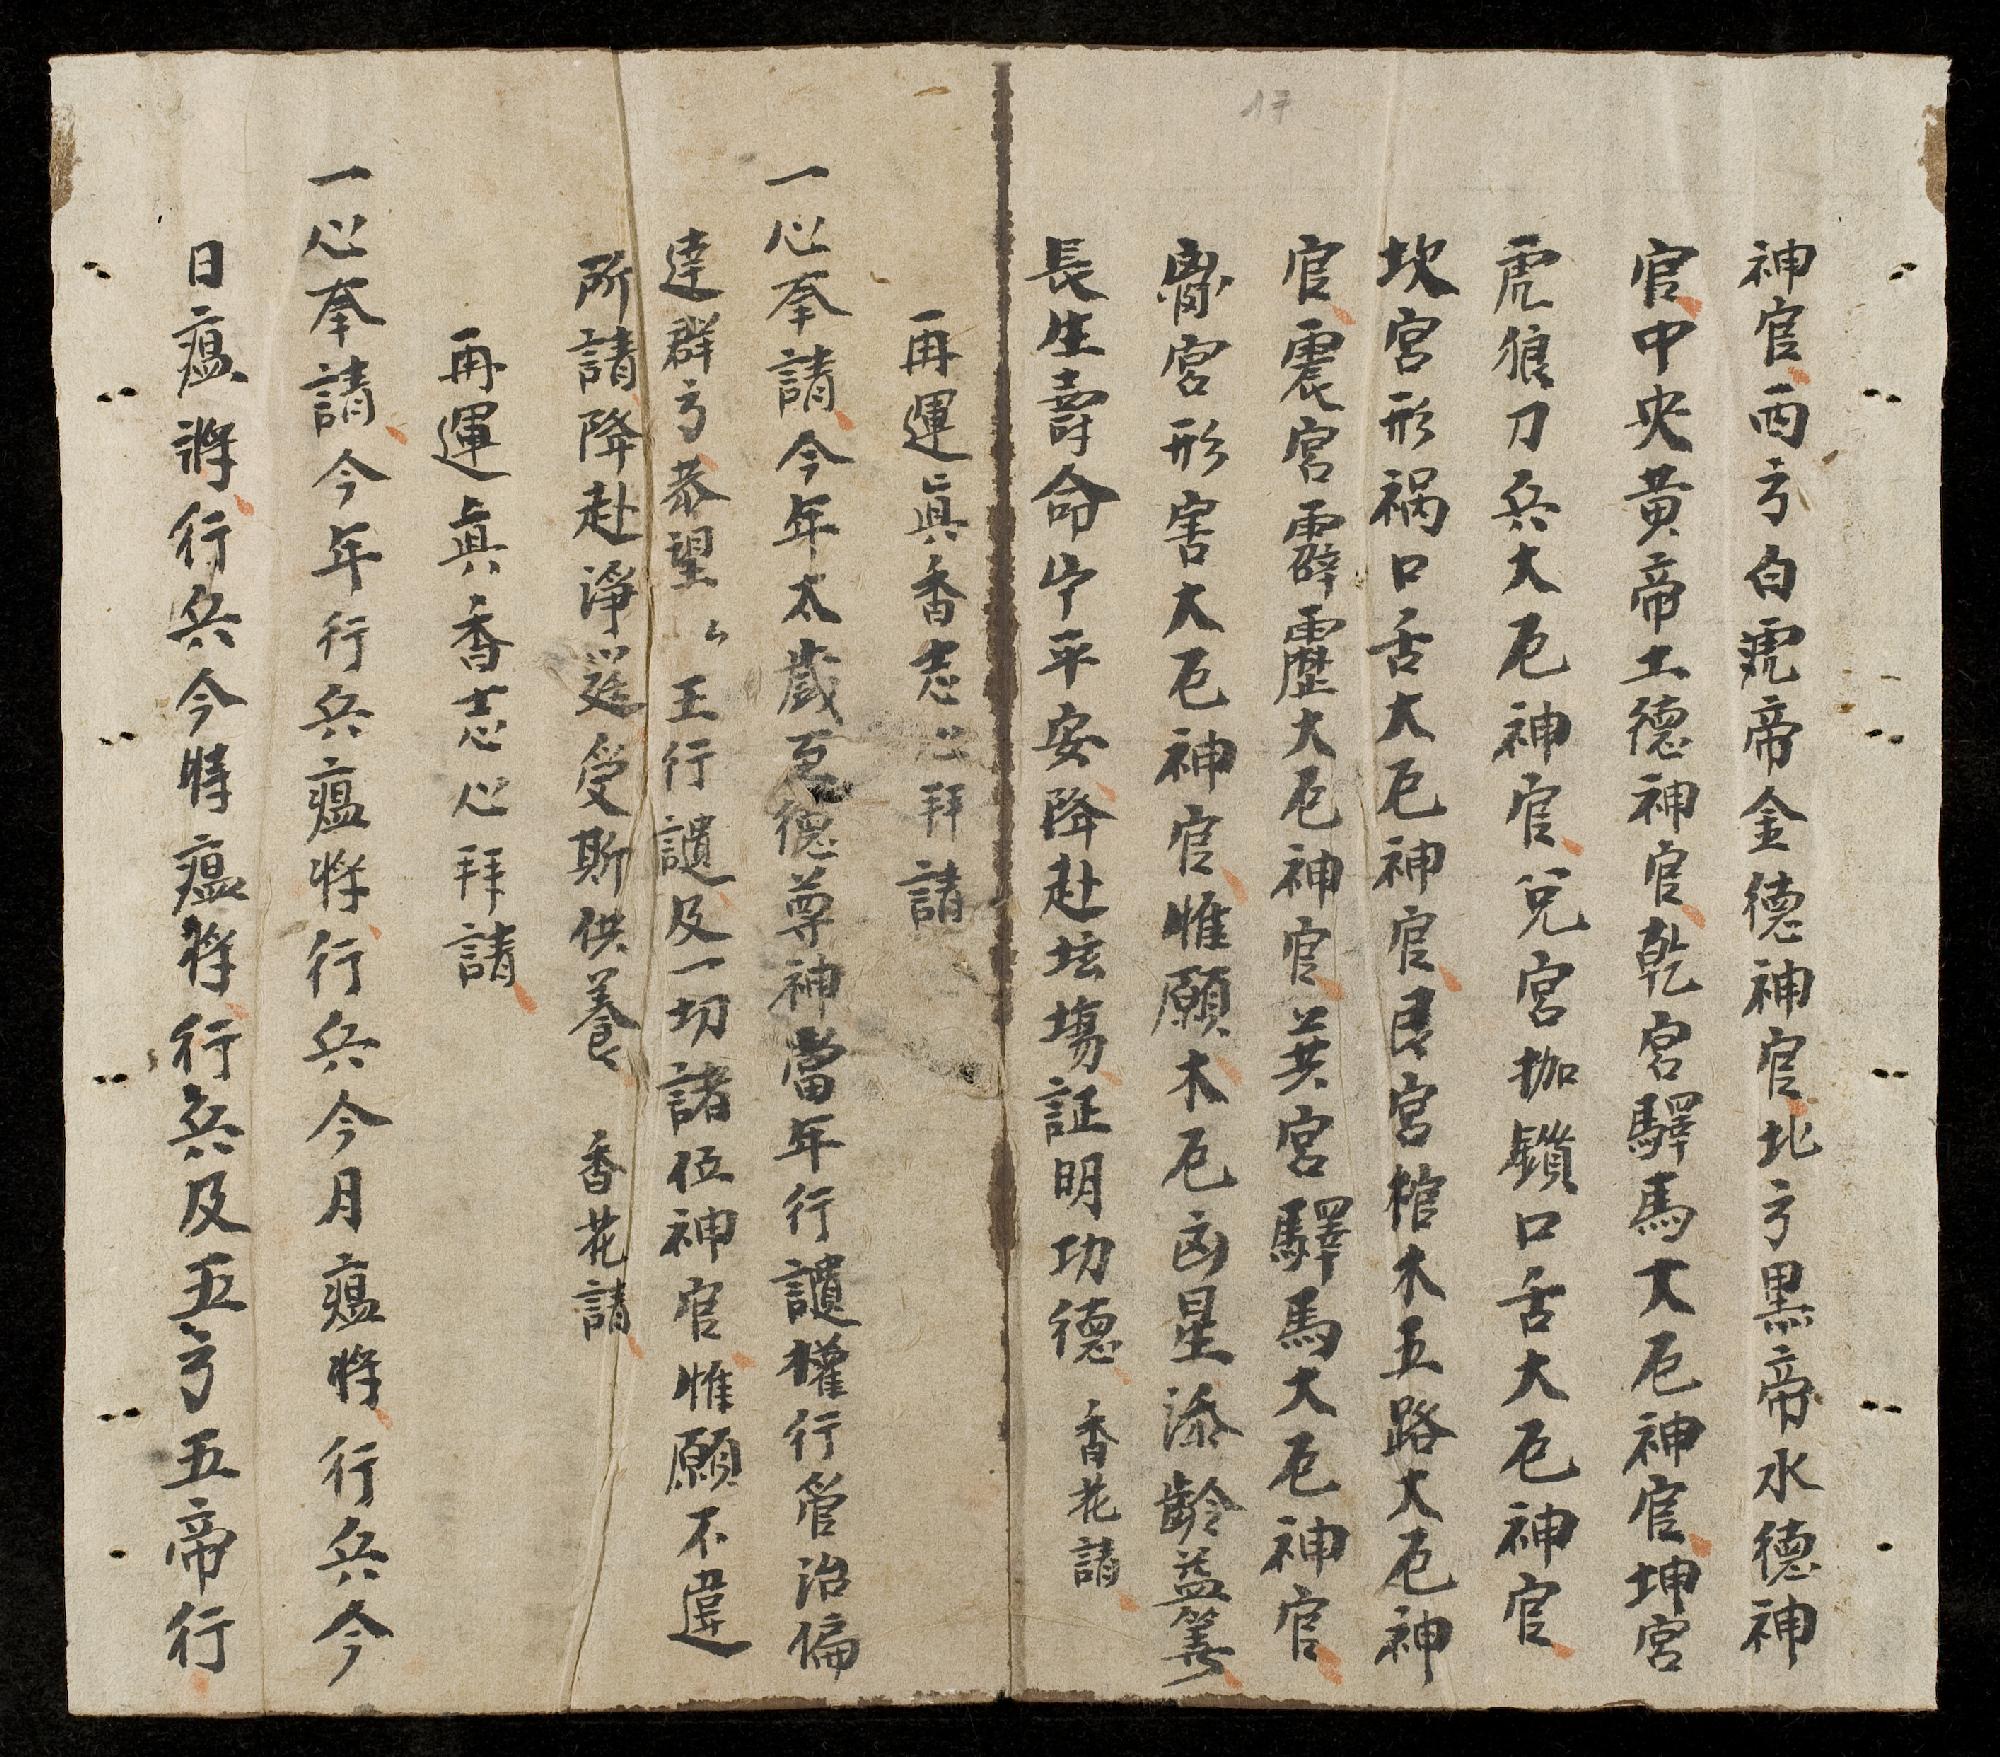 神官西方白虎帝金德神官北方黑帝水德神
官中央黃帝土德神官乾宮驛馬大厄神官坤宮
虎狼刀兵大厄神官兌宮枷鎖口舌大厄神官
坎宮形禍口舌大厄神官艮宮棺木五路大厄神
官震宮霹靂大厄神官巽宮驛馬大厄神官
离宮形害大厄神官惟願木厄凶星添齡益筭
長生壽命宁平安降赴坛塲証明功德 香花請
再運眞香志心拜請
一心奉請今年太歲至德尊神當年行譴權行管治偏
達群方恭望〻王行譴及一切諸位神官惟願不違
所請降赴淨筵受斯供養 香花請
再運眞香志心拜請
一心奉請今年行兵瘟將行兵今月瘟將行兵今
日瘟將行兵今時瘟將行兵及五方五帝行